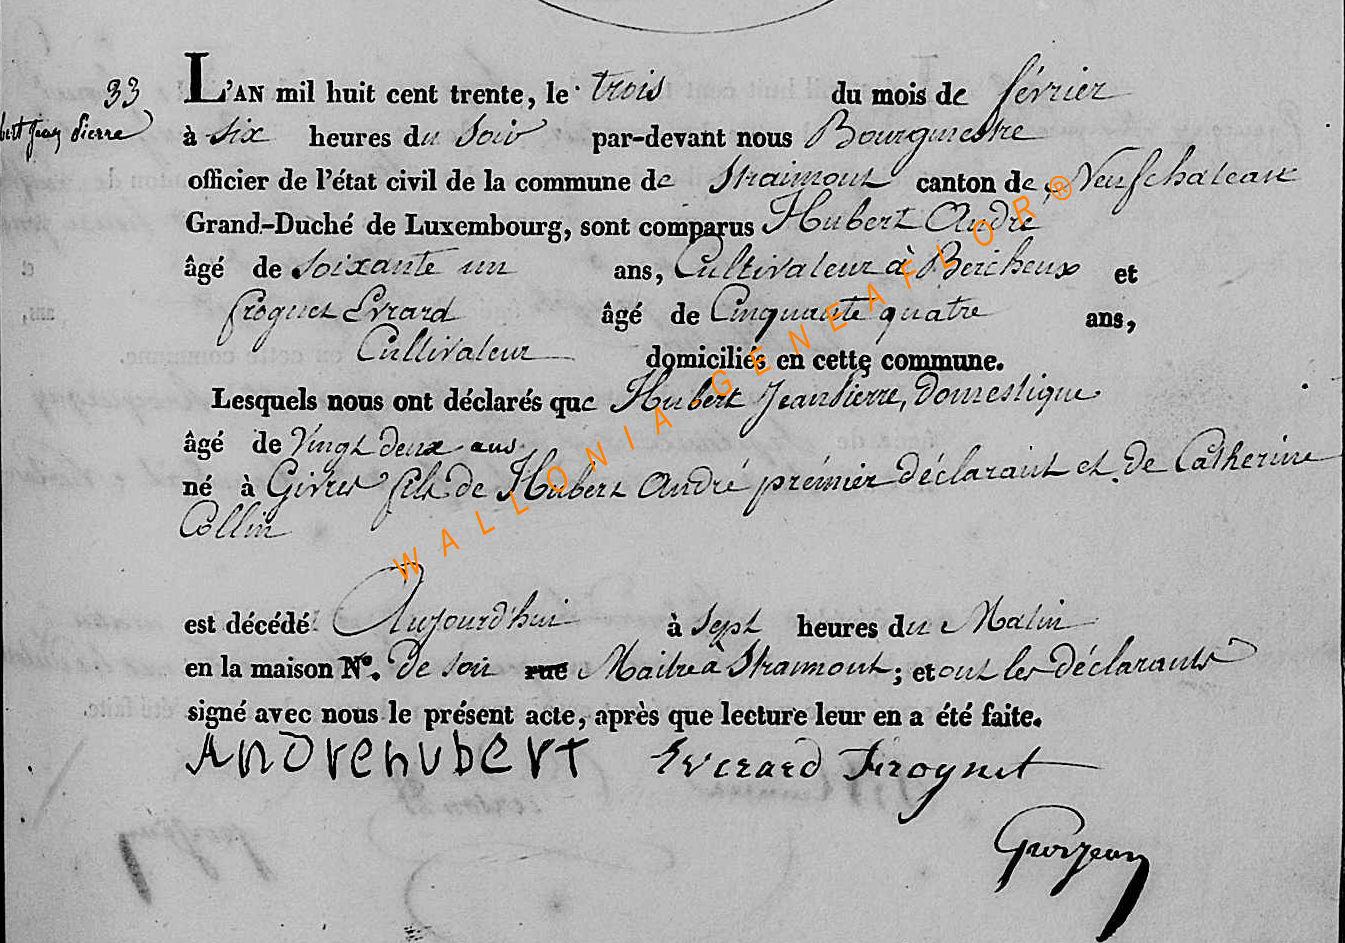 33
bert Jean Pierre
L'AN mil huit cent trente, le trois du mois de février
à six heures du Soir par-devant nous Bourgmestre
officier de l'état civil de la commune de Straimont canton de Neufchateau
Grand-Duché de Luxembourg, sont comparus Hubert André
âgé de Soixante un ans, Cultivateur à Bercheux et
froguet Evrard âgé de Cinquante quatre ans,
Cultivateur domiciliés en cette commune.
Lesquels nous ont déclarés que Hubert Jean Pierre, Domestique
âgé de Vingt deux ans
né à Givres fils de Hubert André prémier déclarant et de Catherine
Collin
est décédé Aujourd'hui à Sept heures du Matin
en la maison No. De son rue Maitre à Straimont; et ont les déclarants
signé avec nous le présent acte, après que lecture leur en a été faite.
Andrehubert Everard froguet
Grosjean
WALLONIA-GENEAFLOR®